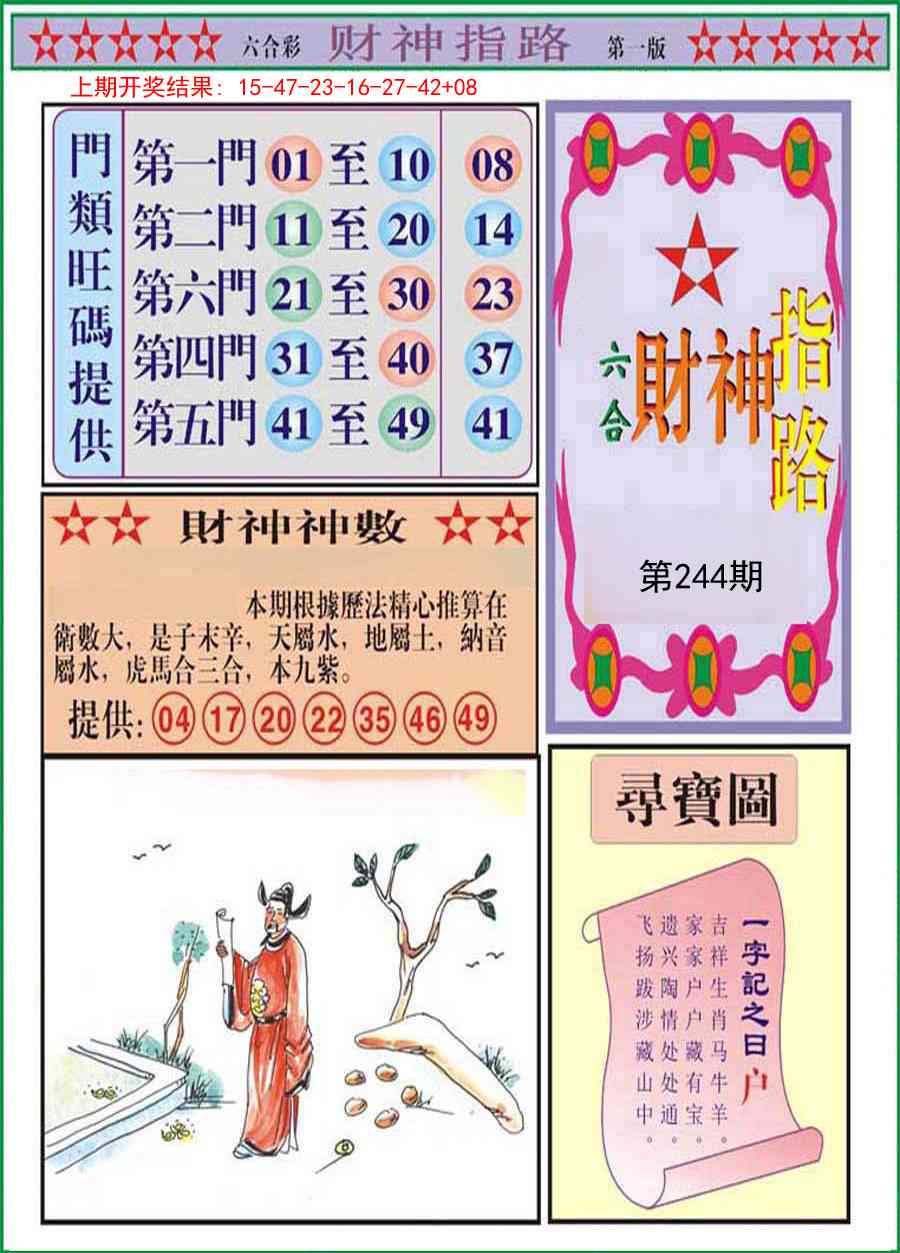 六合彩 财神指路 第一版
上期开奖结果：15-47-23-16-27-42+08
門類旺碼提供
第一門 01 至 10 08
第二門 11 至 20 14
第六門 21 至 30 23
第四門 31 至 40 37
第五門 41 至 49 41
六合 財神 指路
第244期
財神神數
本期根據歷法精心推算在
衛數大，是子末辛，天屬水，地屬土，納音
屬水，虎馬合三合，本九紫。
提供: 04 17 20 22 35 46 49
尋寶圖
一字記之日户
吉祥生肖马牛羊。
家家户户藏有宝。
遗兴陶情处处通。
飞扬跋涉藏山中。